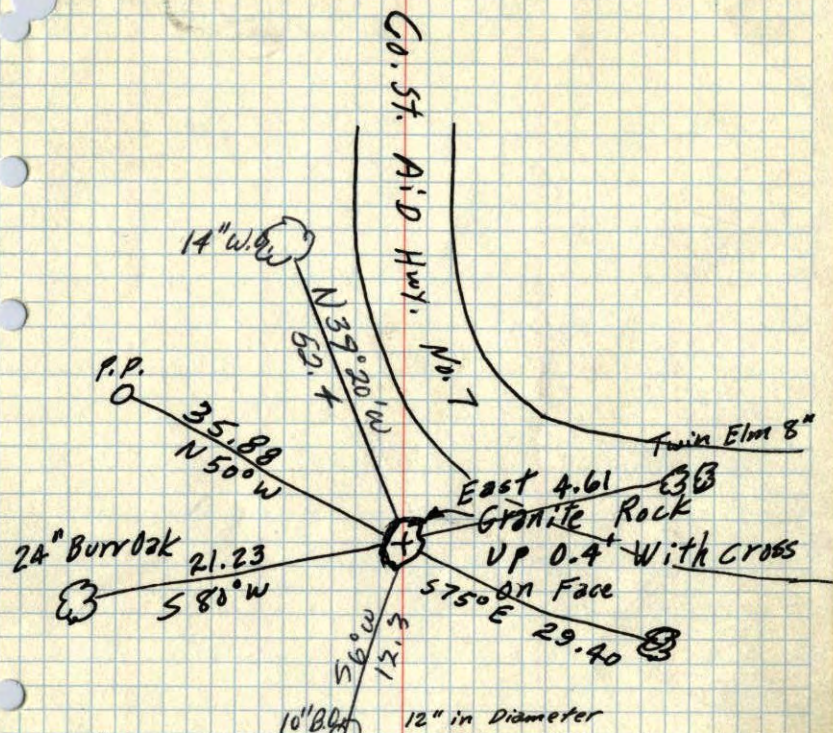 Co. St. Aid Hwy. No. 7
14" W.O.
N 39° 20' W
52.4
P.P.
35.88
N 50° W
Twin Elm 8"
East 4.61
Granite Rock
Up 0.4' With Cross
on Face
24" Burr Oak
21.23
S 80° W
S 75° E
29.40
S 6° W
12.3
12" in Diameter